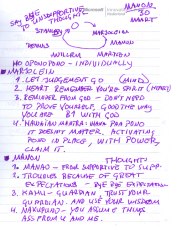 SAY BYE
TO UNSUPPORTIVE
THOUGHTS
MANON
TO
HEART
STANLEY
MARSOLEIN
DENNIS
MANON
MARTIEN
HO OPONOPONO - INDIVIDUALLY
MARSOLEIN
1. LET JUDGEMENT GO (MIND)
2. HEART REMEMBER YOU'RE SPIRIT (HEART)
3. REMINDER FROM GOD - DON'T NEED
TO PROVE YOURSELF, GOOD THE WAY
YOU ARE AT WITH GOD
4. HAWAIIAN MANTRA:
IT DOESN'T MATTER, ACTIVATING
POND IN PLACE, WITH POWER,
CLAIM IT.
MANON
THOUGHTS
1. MANAO - FROM SUPPORTIVE TO SUPP.
2. TROUBLES BECAUSE OF GREAT
EXPECTATIONS - BYE BYE EXPECTATION
3. KAHU - GUARDIAN, TRUST YOUR
GUARDIAN AND USE YOUR WISDOM
4. - YOU ASSUME THINGS
ASS FROM U AND ME.